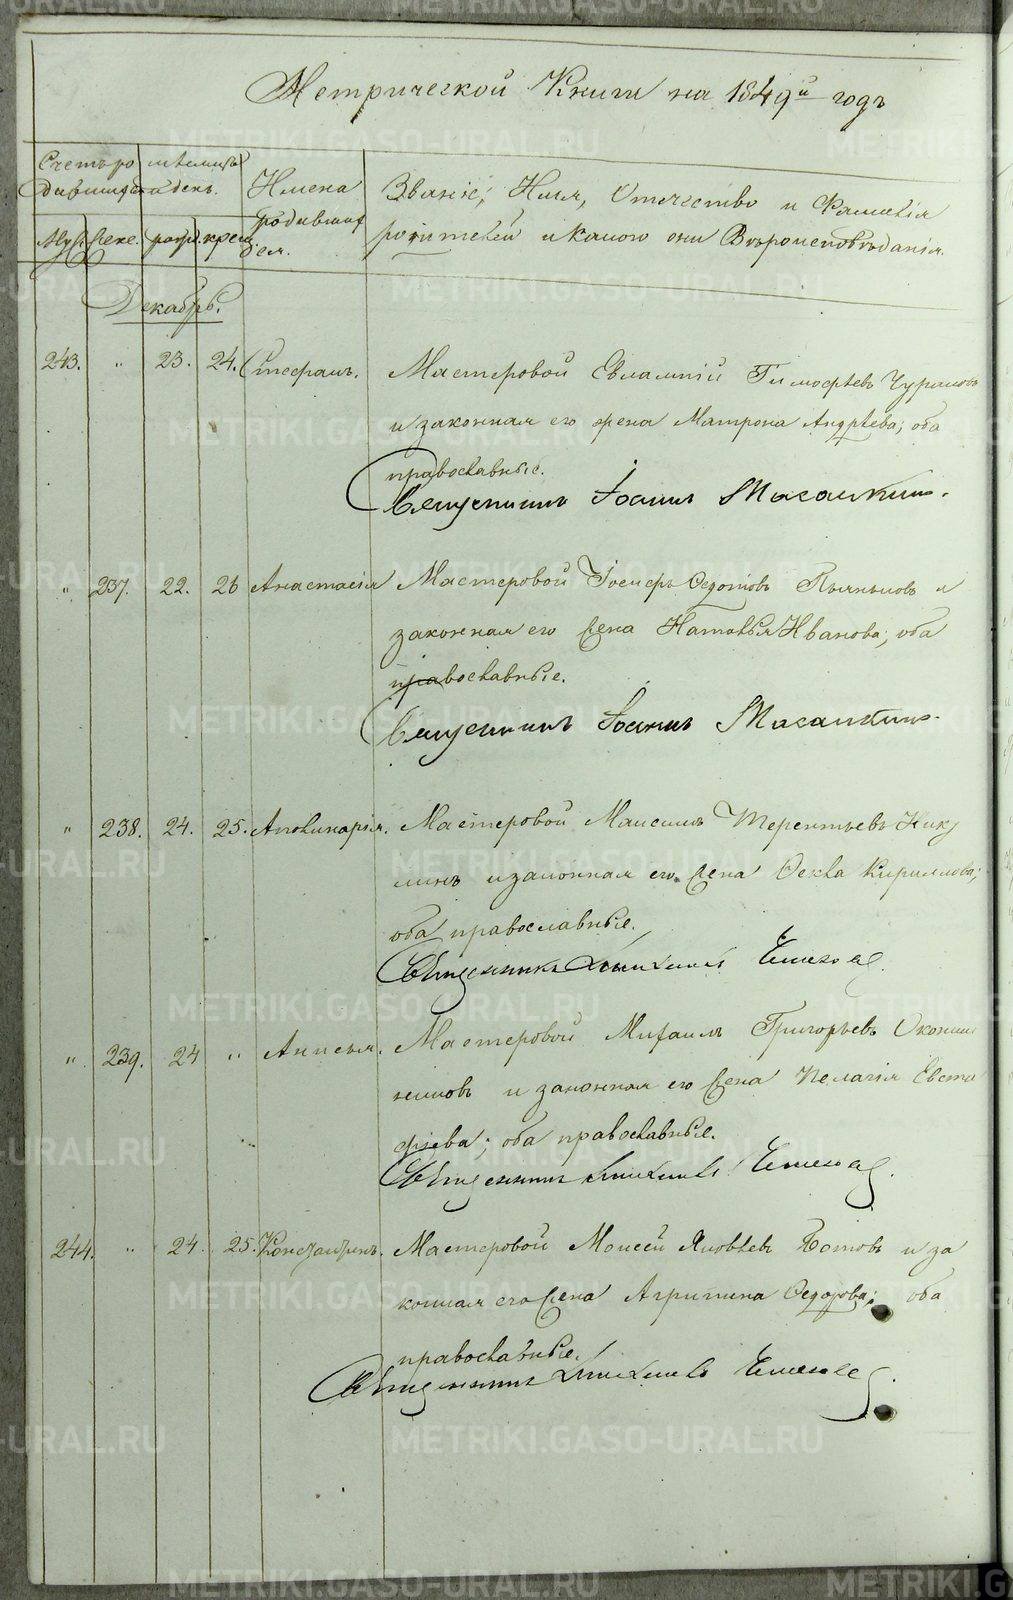 Метрической Книги на 1849й годъ
Счетъ родившихся
мѣсяцъ и день.
Имена родившихся.
Званіе, Имя, Отчество и Фамилія
родителей и какого они Вѣроисповѣданія.
Муж. Жен. рожд. крещ.
Декабрь.
243. " 23. 24. Стефанъ. Мастеровой Евлампій Тимофѣевъ
и законная его жена Матрона Андрѣева; оба
православные.
Священникъ Іоаннъ
" 237. 22. 26 Анастасія Мастеровой Ѳедотовъ и
законная его жена Наталья Иванова; оба
православные.
Священникъ Іоаннъ
" 238. 24. 25. Аполинарія. Мастеровой Максимъ Терентьевъ Нику
линъ и законная его жена Ѳекла Кириллова;
оба православные.
Священникъ
" 239. 24 " Анисья. Мастеровой Михаилъ Григорьевъ
и законная его жена Пелагія Евста
фіева; оба православные.
Священникъ
244. " 24. 25. Константинъ. Мастеровой Моисей Яковлевъ и за
конная его жена Агрипина Ѳедорова; оба
православные.
Священникъ
METRIKI.GASO-URAL.RU